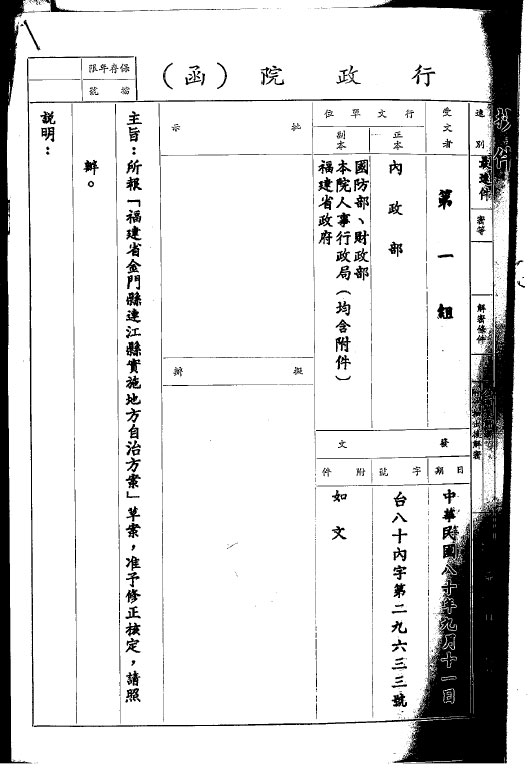 抄件
行政院（函）
保存年限
檔號
速別
最速件
密等
解密條件
受文者
第一組
行文單位
正本
內政部
副本
國防部、財政部
本院人事行政局（均含附件）
福建省政府
發文
日期
中華民國八十年九月十一日
字號
台八十內字第二九六三三號
附件
如文
批示
擬辦
主旨：所報「福建省金門縣連江縣實施地方自治方案」草案，准予修正核定，請照
辦。
說明：